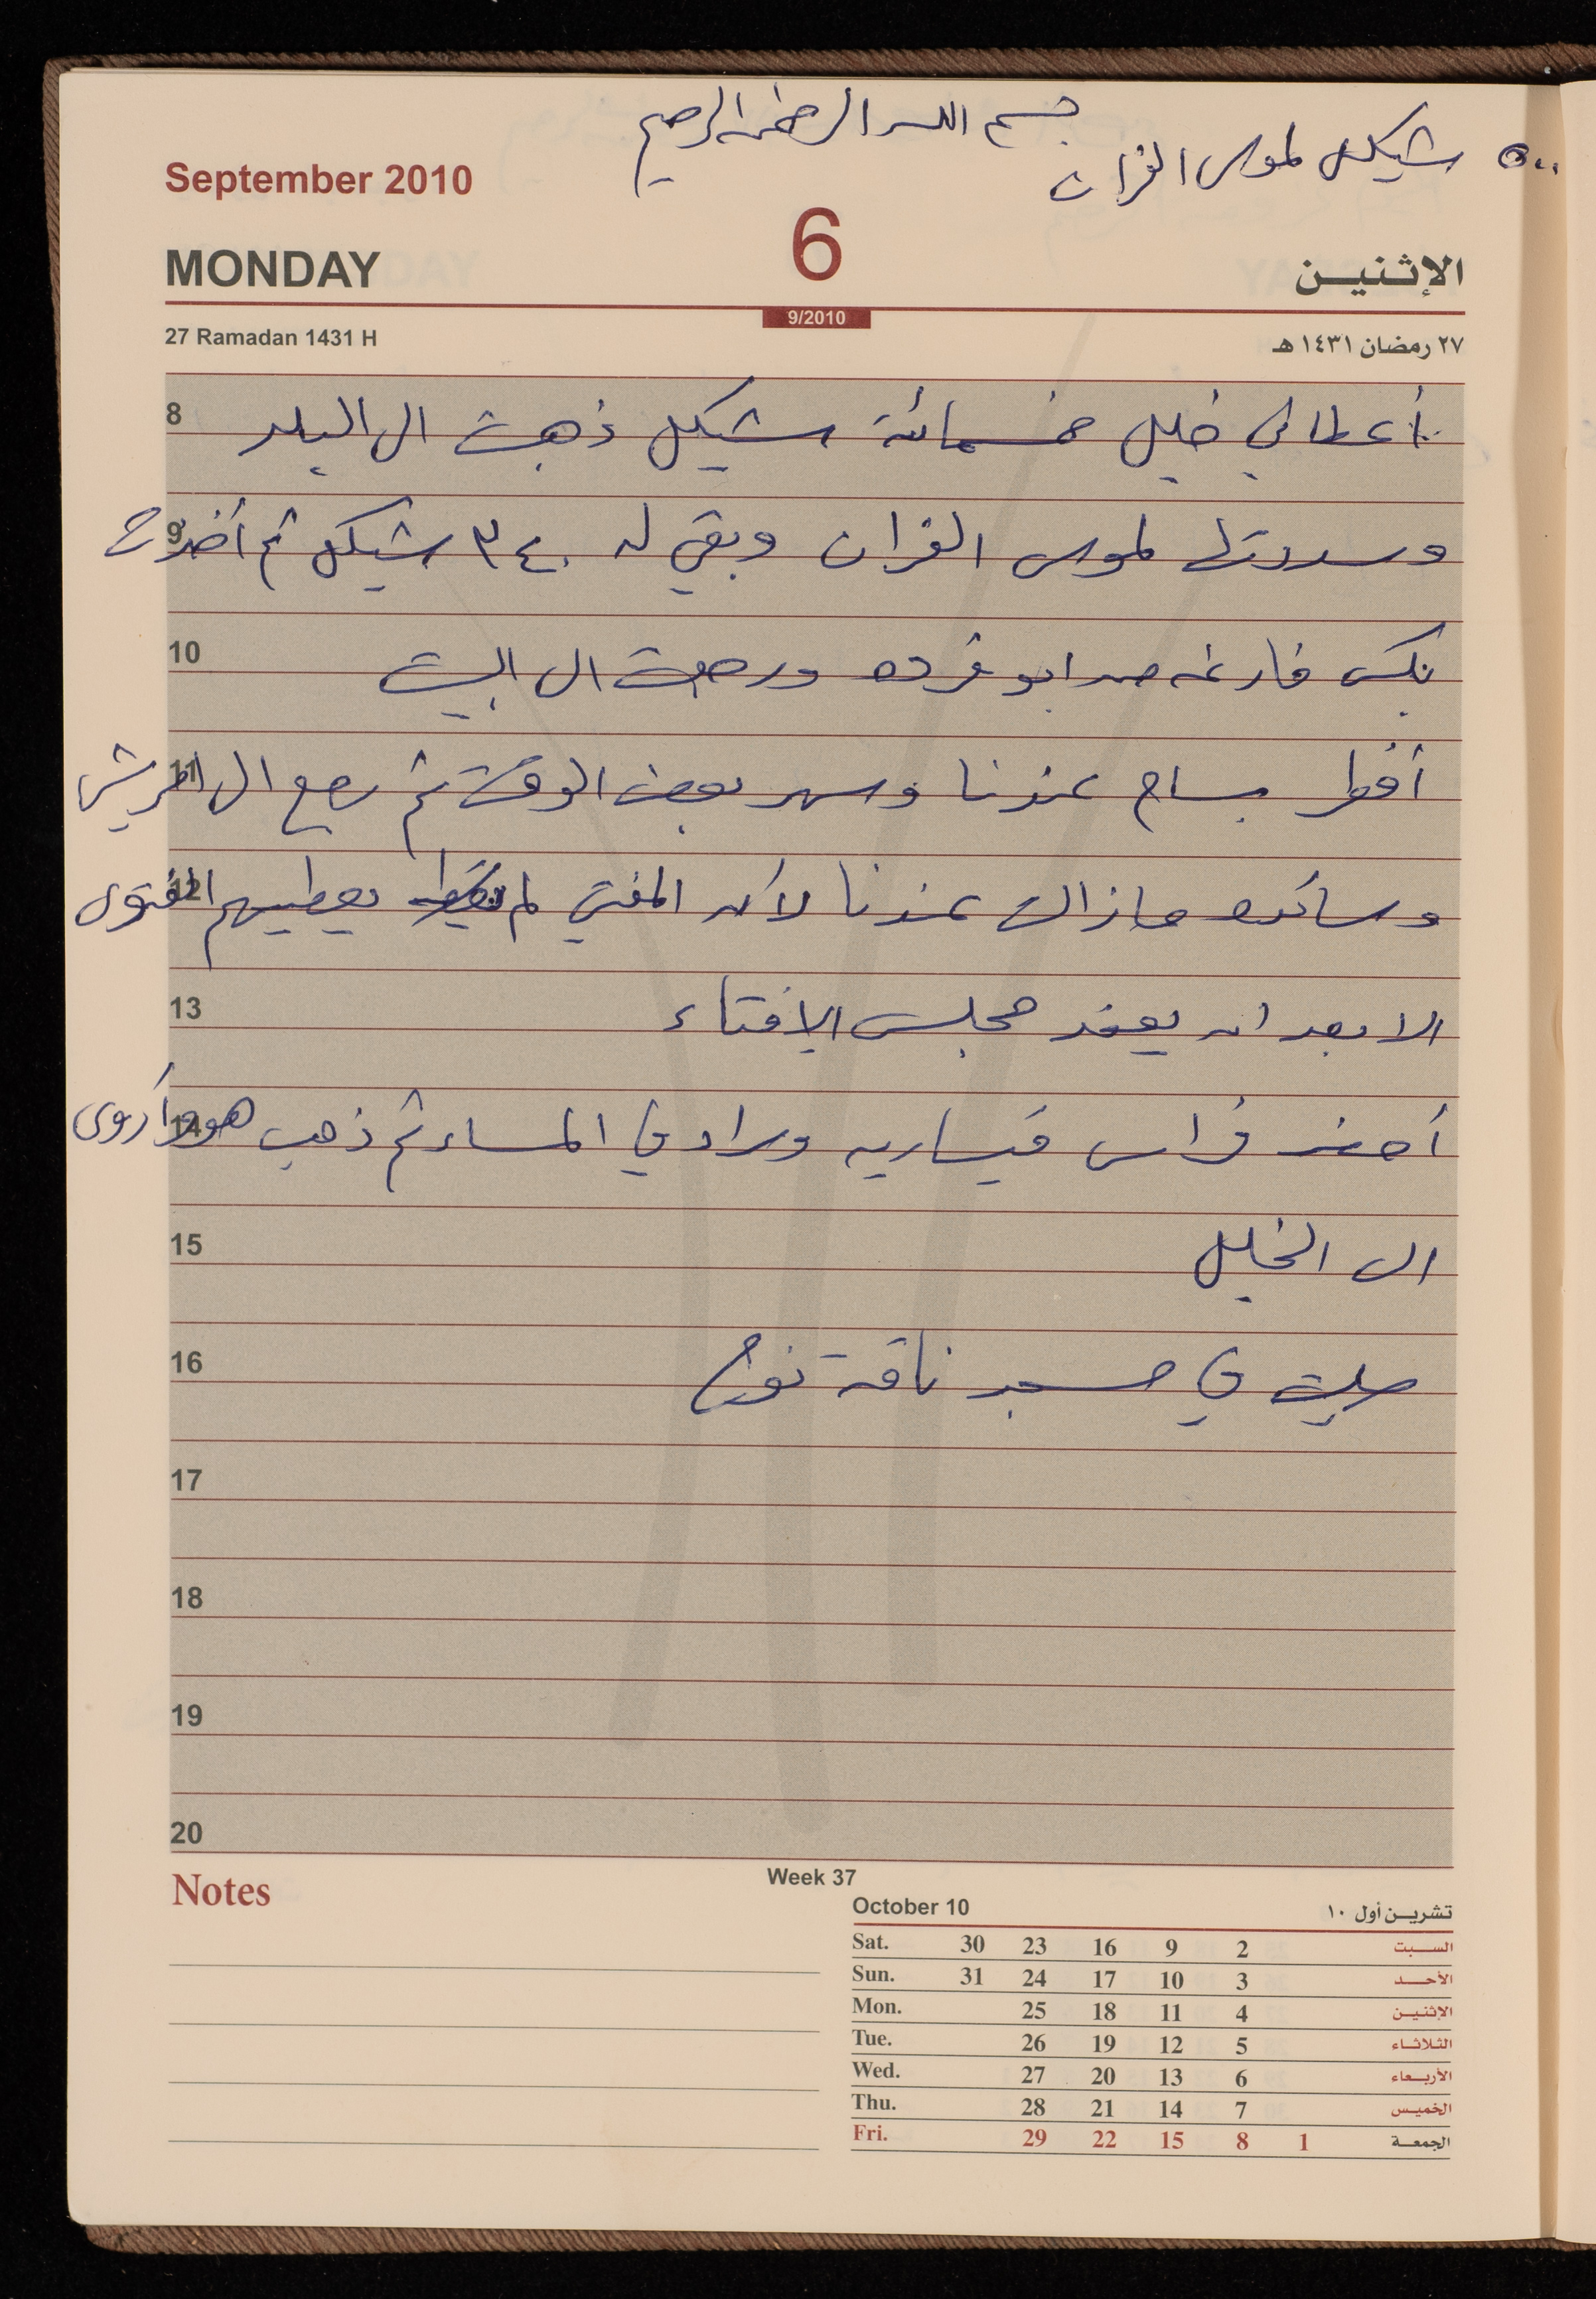 بسم الله الرحمن الرحيم
٥٠٠ شيكل لموسى الفران
September 2010
6
MONDAY الإثنين
9/2010
27 Ramadan 1431 H ٢٧ رمضان ١٤٣١ هـ
8 أعطاني خليل خمسمائة شيكل ذهبت الى البلد
9 وسددتها لموسى الفران وبقي له ٣٤٠ شيكل ثم أخذت
10 بكس فارغه من ابو فرده ورجعت الى البيت
11 أفطر بسام عندنا وسهر بعض الوقت ثم رجع الى العريش
12 وساكنه مازالت عندنا لأن المفتي لم يعطيهم الفتوى
13 الا بعد ان يعقد مجلس الإفتاء
14 أحضر فراس قيساريه وراد في المساء ثم ذهب هو وأروى
15 الى الخليل
16 صليت في مسجد ناقة نوح
17
18
19
20
Notes
Week 37
October 10 تشرين أول ١٠
Sat. 30 23 16 9 2 السبت
Sun. 31 24 17 10 3 الأحد
Mon. 25 18 11 4 الإثنين
Tue. 26 19 12 5 الثلاثاء
Wed. 27 20 13 6 الأربعاء
Thu. 28 21 14 7 الخميس
Fri. 29 22 15 8 1 الجمعة